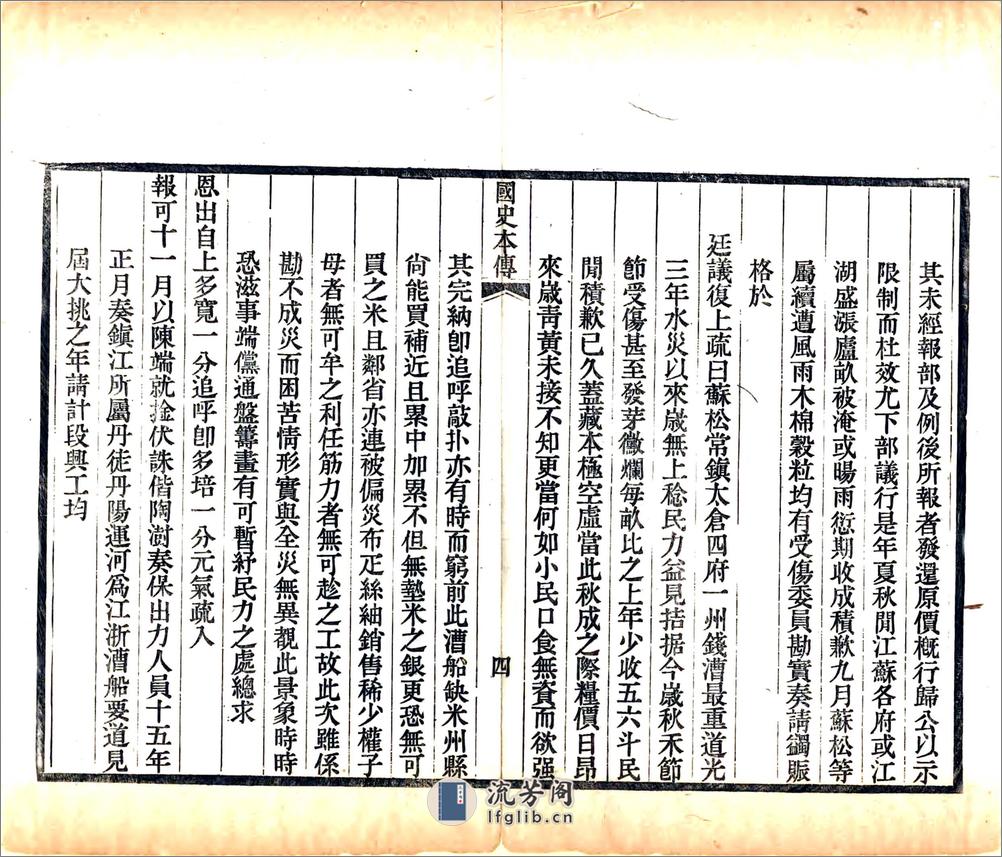 其未經報部及例後所報者發還原價概行歸公以示
限制而杜效尤下部議行是年夏秋閒江蘇各府或江
湖盛漲廬畝被淹或暘雨愆期收成積歉九月蘇松等
屬續遭風雨木棉穀粒均有受傷委員勘實奏請蠲賑
格於
廷議復上疏曰蘇松常鎮太倉四府一州錢漕最重道光
三年水災以來歲無上稔民力益見拮据今歲秋禾節
節受傷甚至發芽黴爛每畝比之上年少收五六斗民
閒積歉已久蓋藏本極空虛當此秋成之際糧價日昂
來歲青黃未接不知更當何如小民口食無資而欲强
國史本傳
四
其完納卽追呼敲扑亦有時而窮前此漕船缺米州縣
尙能買補近且累中加累不但無墊米之銀更恐無可
買之米且鄰省亦連被偏災布疋絲紬銷售稀少權子
母者無可牟之利任筋力者無可趁之工故此次雖係
勘不成災而困苦情形實與全災無異覩此景象時時
恐滋事端儻通盤籌畫有可暫紓民力之處總求
恩出自上多寬一分追呼卽多培一分元氣疏入
報可十一月以陳端就捡伏誅偕陶澍奏保出力人員十五年
正月奏鎮江所屬丹徒丹陽運河爲江浙漕船要道見
屆大挑之年請計段興工均
流芳阁
lfglib.cn